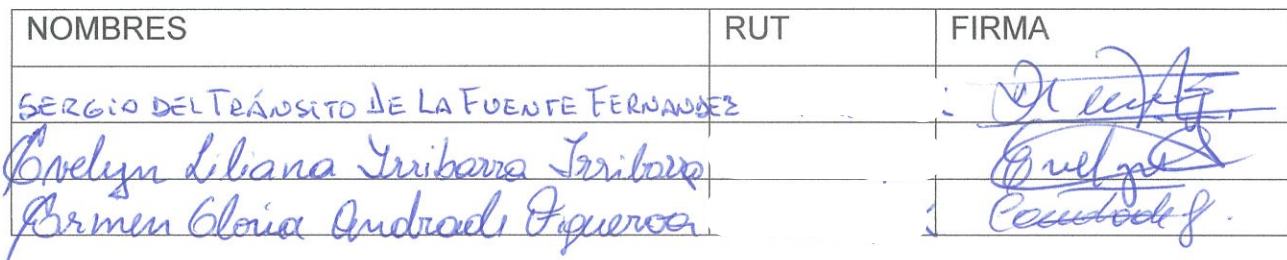 NOMBRES RUT FIRMA
SERGIO DEL TRÁNSITO DE LA FUENTE FERNANDEZ
Evelyn Liliana Irribarra Irribarra Evelyn
Carmen Gloria Andrade Figueroa